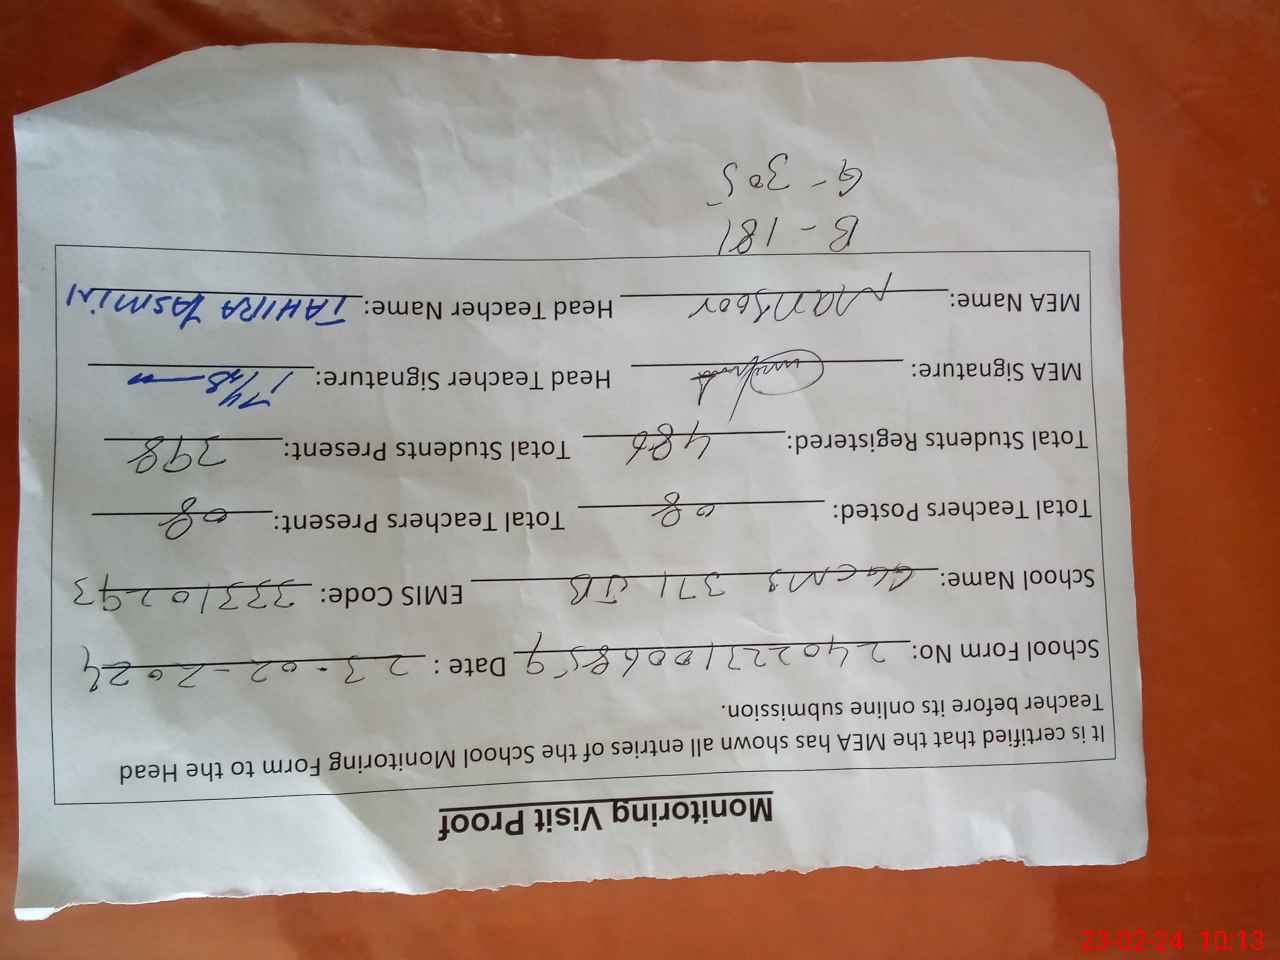 Monitoring Visit Proof
It is certified that the MEA has shown all entries of the School Monitoring Form to the Head
Teacher before its online submission.
School Form No: 24022310068559 Date : 23-02-2024
School Name: GGCMS 371 JB EMIS Code: 33310293
Total Teachers Posted: 08 Total Teachers Present: 08
Total Students Registered: 486 Total Students Present: 398
MEA Signature: Head Teacher Signature:
MEA Name: Mansoor Head Teacher Name: TAHIRA YASMIN
B - 181
G - 305
23-02-24 10:13